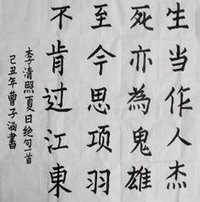 生当作人杰
死亦為鬼雄
至今思项羽
不肯过江東
李清照夏日绝句一首
己丑年曹子涵書